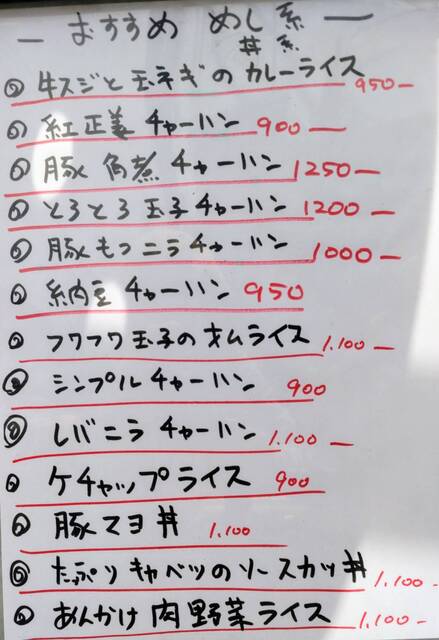 — おすすめ めし系 —
丼系
牛スジと玉ネギのカレーライス 950—
紅正姜チャーハン 900—
豚角煮チャーハン 1250—
とろとろ玉子チャーハン 1200—
豚もつニラチャーハン 1000—
納豆チャーハン 950
フワフワ玉子のオムライス 1.100—
シンプルチャーハン 900
レバニラチャーハン 1.100—
ケチャップライス 900
豚マヨ丼 1.100
たっぷりキャベツのソースカツ丼 1.100-
あんかけ肉野菜ライス 1.100-